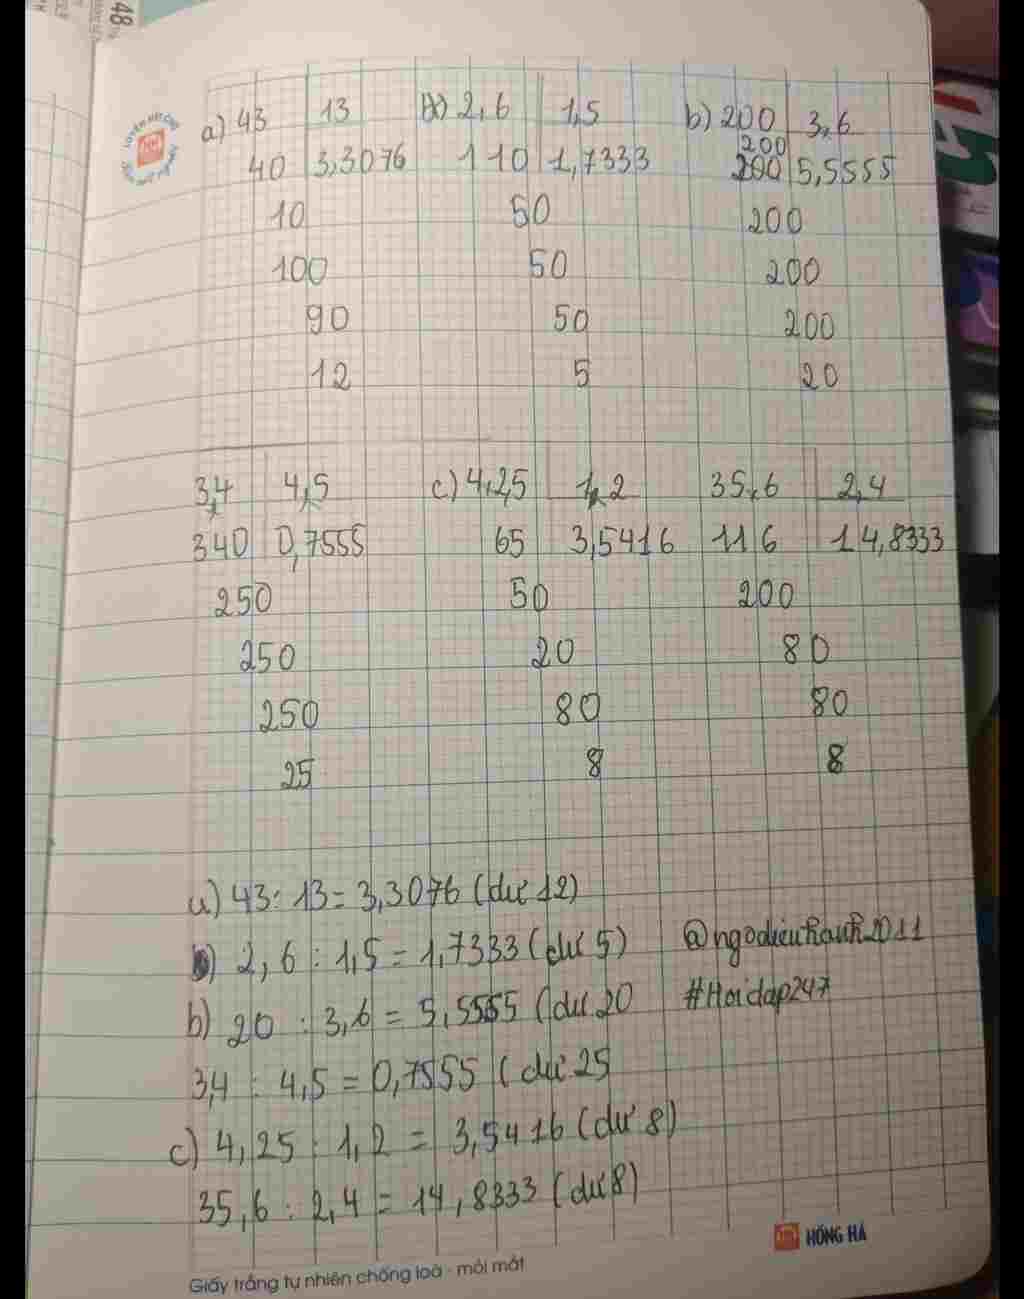 a) 43 13 2,6 1,5 b) 200 3,6
200
40 3,3076 110 1,7333 200 5,5555
10 50 200
100 50 200
90 50 200
12 5 20
3,4 4,5 c) 4,25 1,2 35,6 2,4
340 0,7555 65 3,5416 116 14,8333
250 50 200
250 20 80
250 80 80
25 8 8
a) 43 : 13 = 3,3076 (dư 12)
2,6 : 1,5 = 1,7333 (dư 5) @ngodieukhanh2011
b) 20 : 3,6 = 5,5555 (dư 20 #Hoidap247
3,4 : 4,5 = 0,7555 (dư 25
c) 4,25 : 1,2 = 3,5416 (dư 8)
35,6 : 2,4 = 14,8333 (dư 8)
HỒNG HÀ
Giấy trắng tự nhiên chống loá - mỏi mắt